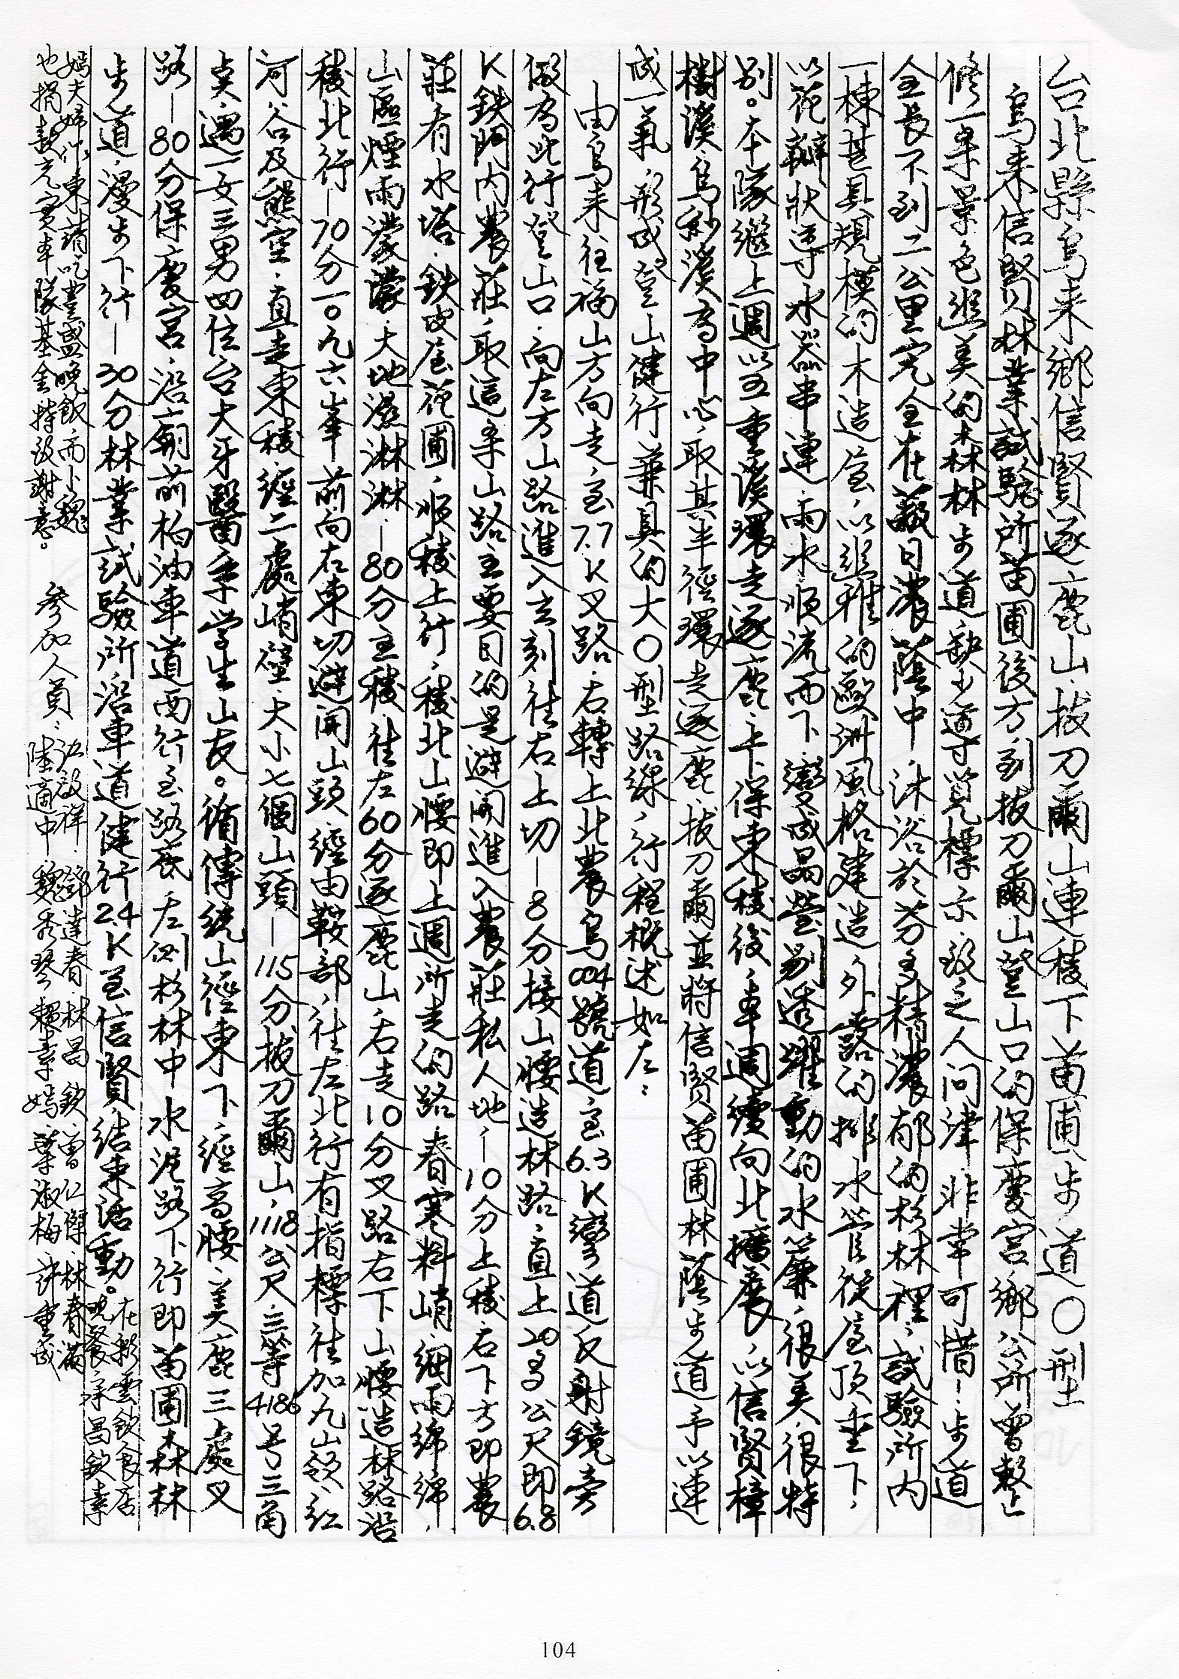 台北縣烏来鄉信賢逐鹿山.拔刀爾山連稜下苗圃步道〇型
烏来信賢林業試驗所苗圃後方.到拔刀爾山登山口的保慶宮鄉公所曾整
修一条景色幽美的森林步道.缺少導覽標示.致乏人問津.非常可惜!步道
全長不到二公里完全在蔽日濃蔭中.沐浴於芬多精濃郁的杉林裡.試驗所內
一棟甚具規模的木造屋.以幽雅的歐洲風格建造.外露的排水管從屋頂垂下.
以花瓣狀導水器串連.雨水順流而下.變成晶瑩剔透躍動的水簾.很美.很特
別。本隊繼上週以五重溪環走逐鹿.卡保東稜後.本週續向北擴展.以信賢樟
樹溪.烏秋溪為中心.取其半徑環走逐鹿.拔刀爾並將信賢苗圃林蔭步道予以連
成一氣.形成登山健行兼具的大〇型路線.行程概述如左:
由烏来往福山方向走.至7.7K叉路.右轉上北農烏004號道.至6.3K彎道反射鏡旁
做為此行登山口.向左方山路進入.立刻往右上切-8分接山腰造林路.直上20多公尺即6.8
K鉄門內農莊.取這条山路主要目的是避開進入農莊私人地-10分上稜.右下方即農
莊.有水塔.鉄皮屋花圃.順稜上行.稜北山腰即上週所走的路.春寒料峭.細雨綿綿.
山區煙雨濛濛.大地濕淋淋-80分主稜往左60分逐鹿山.右走10分叉路右下山腰造林路沿
稜北行-70分一〇九六峯前向右東切避開山頭.經由鞍部.往左北行有指標往加九山嶺.紅
河谷及熊空.直走東稜.經二處峭壁.大小七個山頭-115分拔刀爾山.1118公尺.三等4186号三角
點.遇一女三男四位台大牙醫系学生山友。循傳統山徑東下.經高腰.美鹿三處叉
路-80分保慶宮.沿廟前柏油車道西行至路底左側杉林中水泥路下行即苗圃森林
步道.漫步下行-30分林業試驗所沿車道健行2.4K至信賢結束活動。在彩雲飲食店
晚餐.承昌欽.素
嫣夫婦作東請吃豐盛晚飯.而小魏
也捐款充實本隊基金特致謝意。
參加人員:江啟祥.鄧達春.林昌欽.曾仁傑.林春滿
陸適中.魏秀琴.賴素嫣.葉淑梅.許重成
104